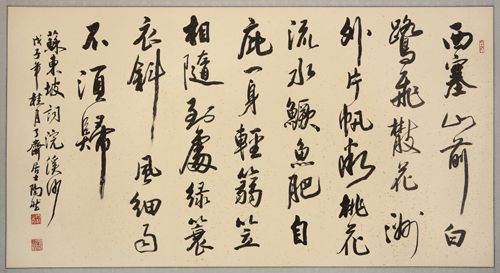 西塞山前白
鹭飞散花洲
外片帆微桃花
流水鳜鱼肥自
庇一身轻箬笠
相随到处绿蓑
衣斜风细雨
不须归
苏东坡词浣溪沙
戊子年桂月了斋居士陶然